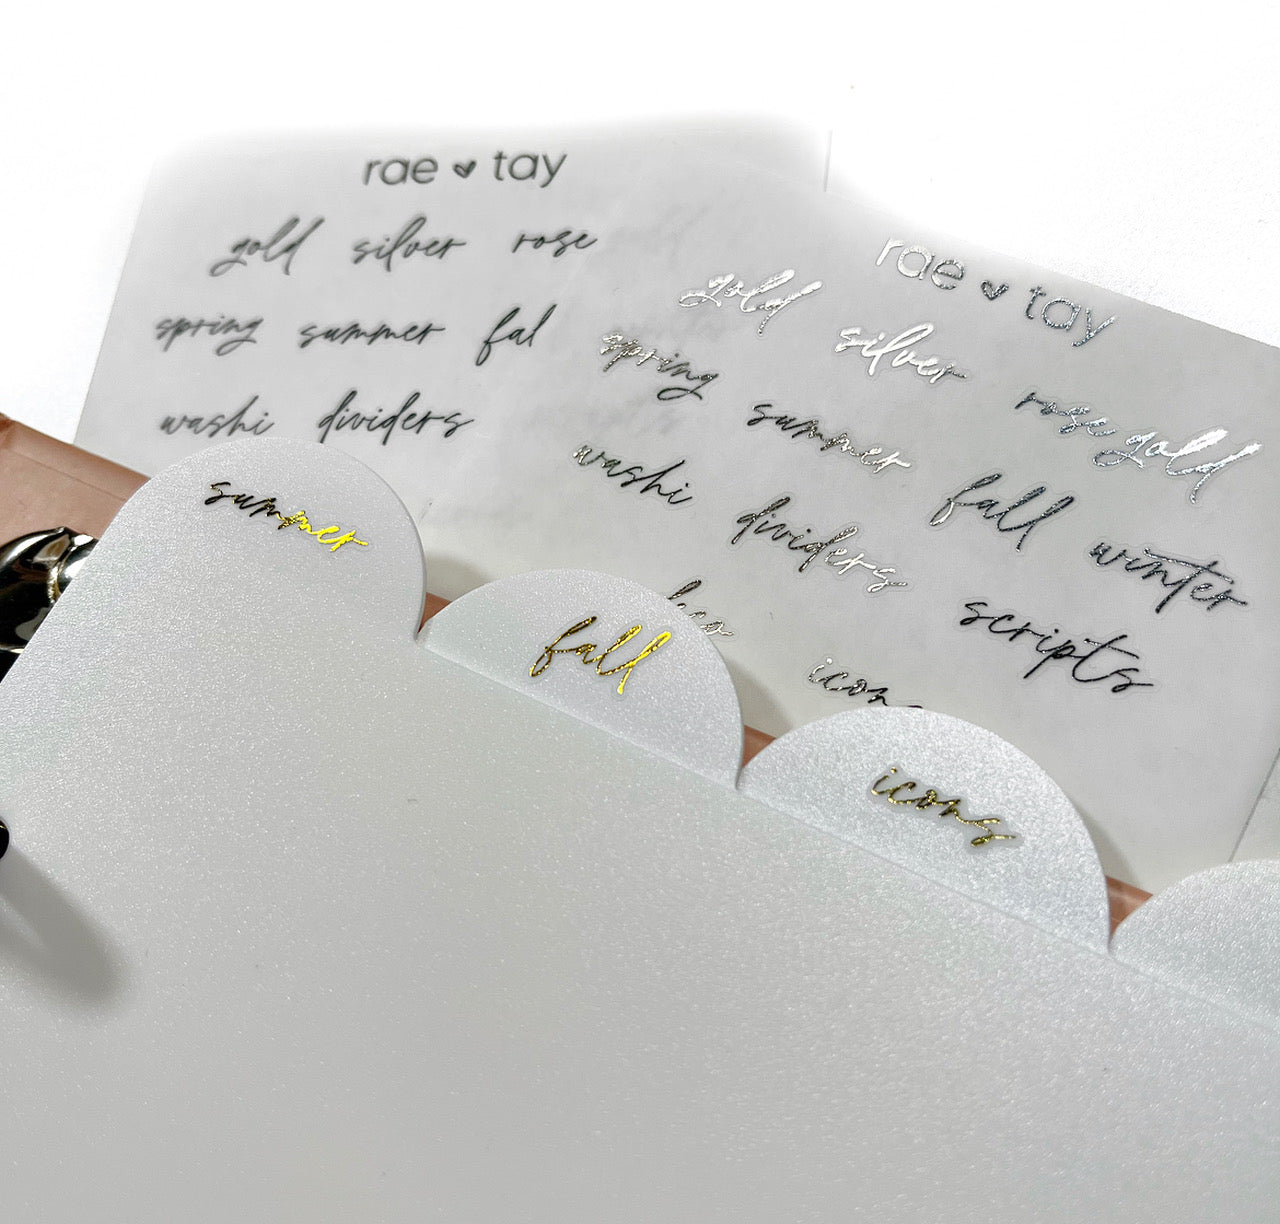 rae ♥ tay
gold silver rose
spring summer fal
washi dividers
rae ♥ tay
gold silver rose gold
spring summer fall winter
washi dividers scripts
deco icons
summer
fall
icons